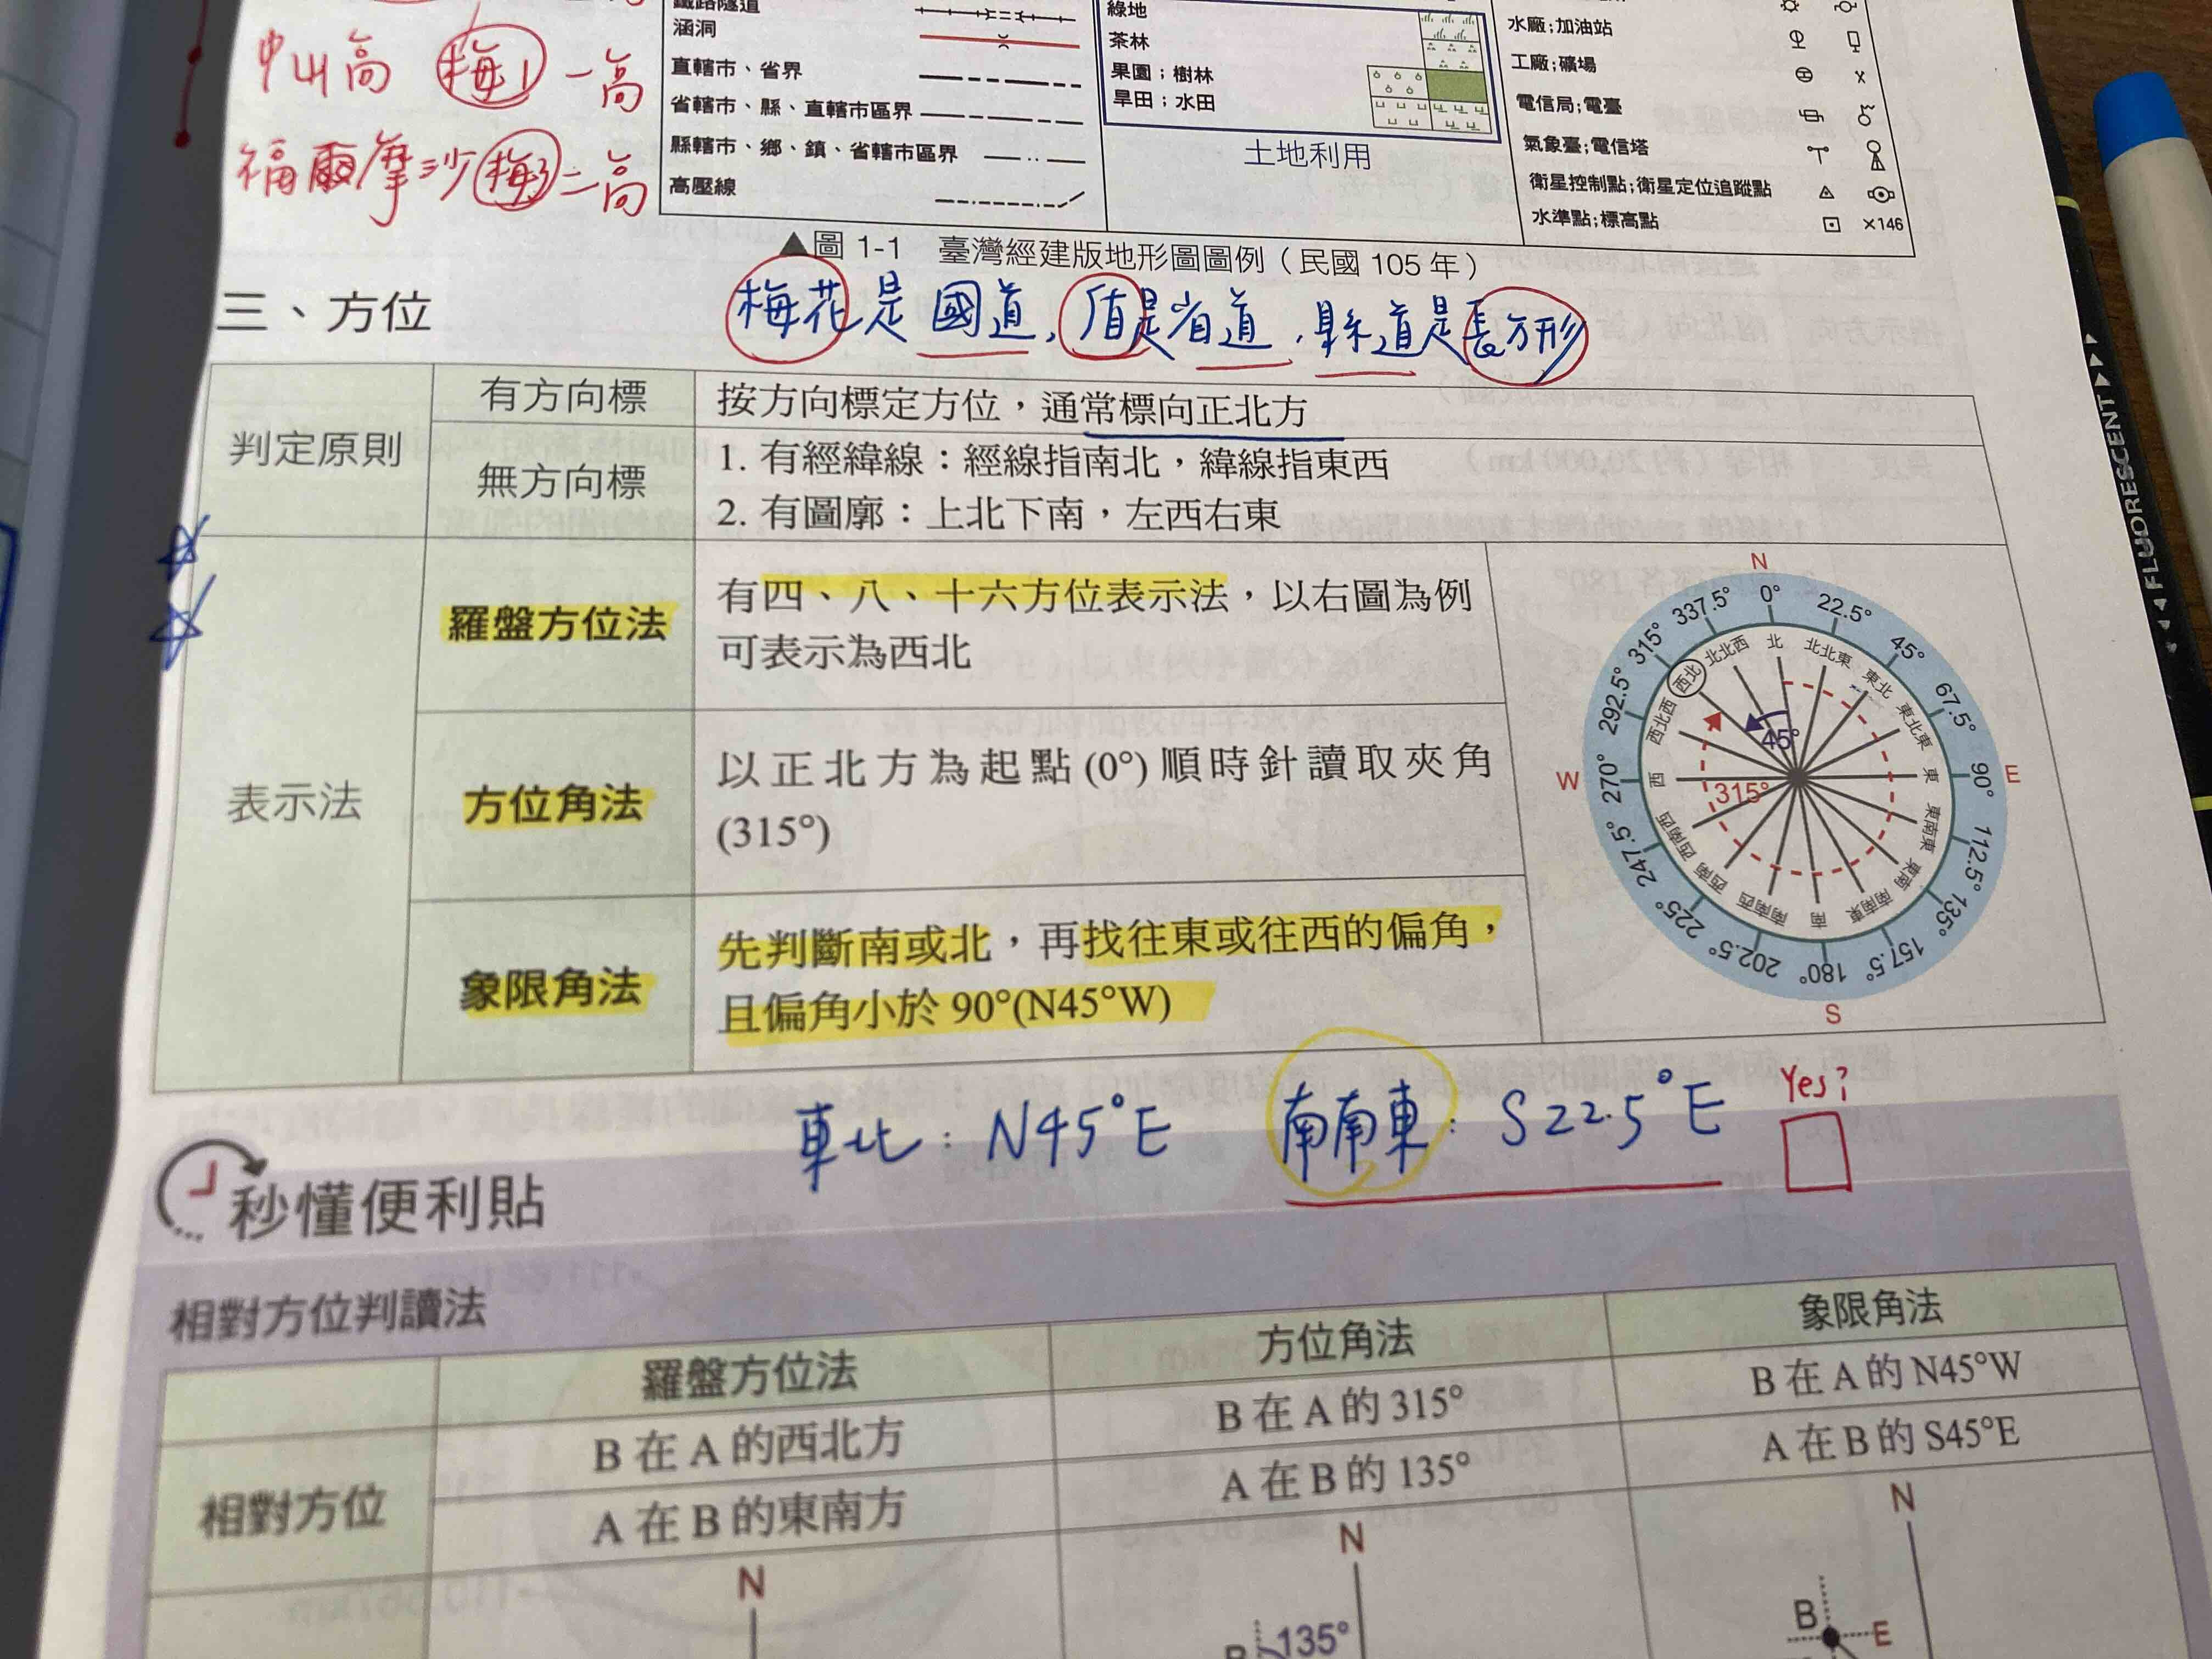 中山高 梅1 一高
福爾摩沙 梅3 二高
鐵路隧道
涵洞
直轄市、省界
省轄市、縣、直轄市區界
縣轄市、鄉、鎮、省轄市區界
高壓線
綠地
茶林
果園;樹林
旱田;水田
土地利用
水廠;加油站
工廠;礦場
電信局;電臺
氣象臺;電信塔
衛星控制點;衛星定位追蹤點
水準點;標高點
×146
▲圖 1-1 臺灣經建版地形圖圖例(民國 105 年)
三、方位
梅花是國道、盾是省道、縣道是長方形
判定原則
有方向標
按方向標定方位,通常標向正北方
無方向標
1. 有經緯線:經線指南北,緯線指東西
2. 有圖廓:上北下南,左西右東
表示法
羅盤方位法
有四、八、十六方位表示法,以右圖為例
可表示為西北
方位角法
以正北方為起點(0°)順時針讀取夾角
(315°)
象限角法
先判斷南或北,再找往東或往西的偏角,
且偏角小於 90°(N45°W)
N
0°
22.5°
45°
67.5°
90°
E
112.5°
135°
157.5°
180°
S
202.5°
225°
247.5°
270°
W
292.5°
315°
337.5°
北
北北東
東北
東北東
東
東南東
東南
南南東
南
南南西
西南
西南西
西
西北西
西北
北北西
45°
315°
東北:N45°E 南南東:S22.5°E
Yes?
秒懂便利貼
相對方位判讀法
羅盤方位法
方位角法
象限角法
相對方位
B 在 A 的西北方
B 在 A 的 315°
B 在 A 的 N45°W
A 在 B 的東南方
A 在 B 的 135°
A 在 B 的 S45°E
N
N
N
B
135°
B
E
FLUORESCENT